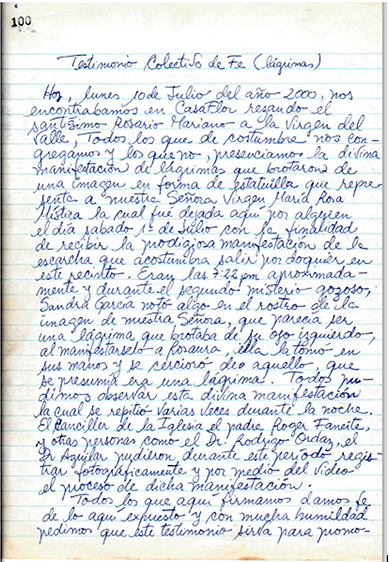 100
Testimonio Colectivo de Fe (lágrimas)
Hoy, lunes 10 de Julio del año 2000, nos
encontrabamos en CasaFlor rezando el
santísimo Rosario Mariano a la Virgen del
Valle, Todos los que de costumbre nos con-
gregamos y los que no, presenciamos la divina
manifestación de lágrimas que brotaron de
una imagen en forma de estatuilla que repre
senta a nuestra Señora Virgen María Rosa
Mística la cual fue dejada aquí por alguien
el día sábado 1º de Julio con la finalidad
de recibir la prodigiosa manifestación de la
escarcha que acostumbra salir por doquier en
este recinto. Eran las 7:22 pm aproximada
mente y durante el segundo misterio gozoso,
Sandra García notó algo en el rostro de la
imagen de nuestra Señora, que parecía ser
una lágrima que brotaba de su ojo izquierdo,
al manifestárselo a Rosaura, ella la tomó en
sus manos y se cercioró de aquello, que
se presumía era una lágrima. Todos pu-
dimos observar esta divina manifestación
la cual se repitió varias veces durante la noche.
El canciller de la Iglesia el padre Roger Faneite,
y otras personas como el Dr. Rodrigo Ordaz, el
Dr Aguilar pudieron, durante este período regis-
trar fotográficamente y por medio del video
el proceso de dicha manifestación.
Todos los que aquí firmamos damos fe
de lo aquí expuesto y con mucha humildad
pedimos que este testimonio sirva para promo-